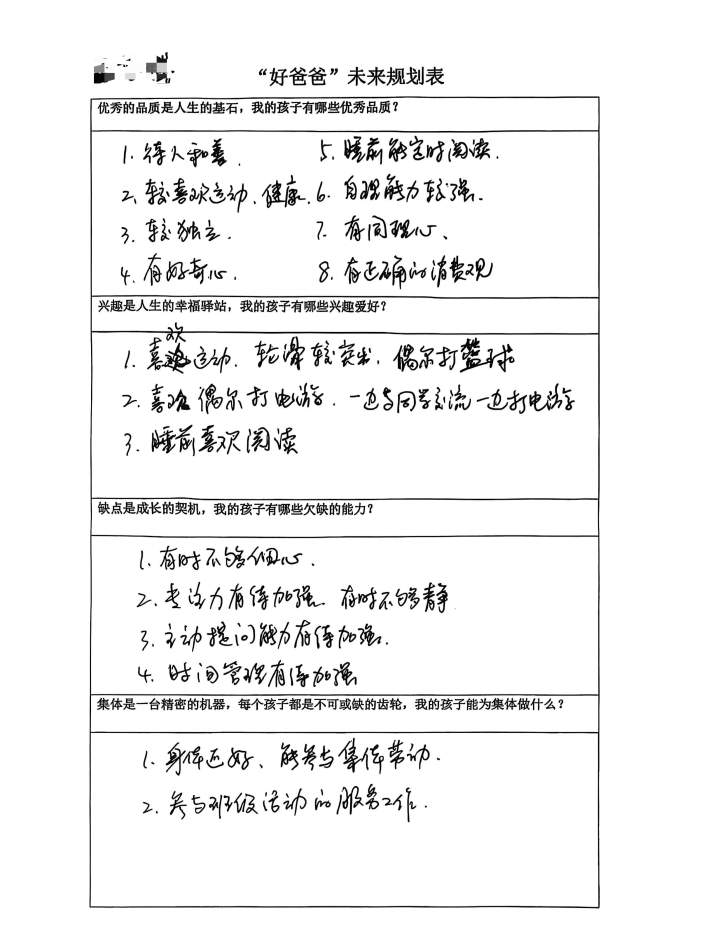 “好爸爸”未来规划表
优秀的品质是人生的基石，我的孩子有哪些优秀品质？
1. 待人和善. 5. 睡前能定时阅读.
2. 较喜欢运动、健康. 6. 自理能力较强.
3. 较独立. 7. 有同理心、
4. 有好奇心. 8. 有正确的消费观
兴趣是人生的幸福驿站，我的孩子有哪些兴趣爱好？
1. 喜欢运动. 轮滑较突出. 偶尔打篮球
2. 喜欢偶尔打电游. 一边与同学交流一边打电游
3. 睡前喜欢阅读
缺点是成长的契机，我的孩子有哪些欠缺的能力？
1. 有时不够细心.
2. 专注力有待加强. 有时不够静
3. 主动提问能力有待加强.
4. 时间管理有待加强
集体是一台精密的机器，每个孩子都是不可或缺的齿轮，我的孩子能为集体做什么？
1. 身体还好、能参与集体劳动.
2. 参与班级活动的服务工作.